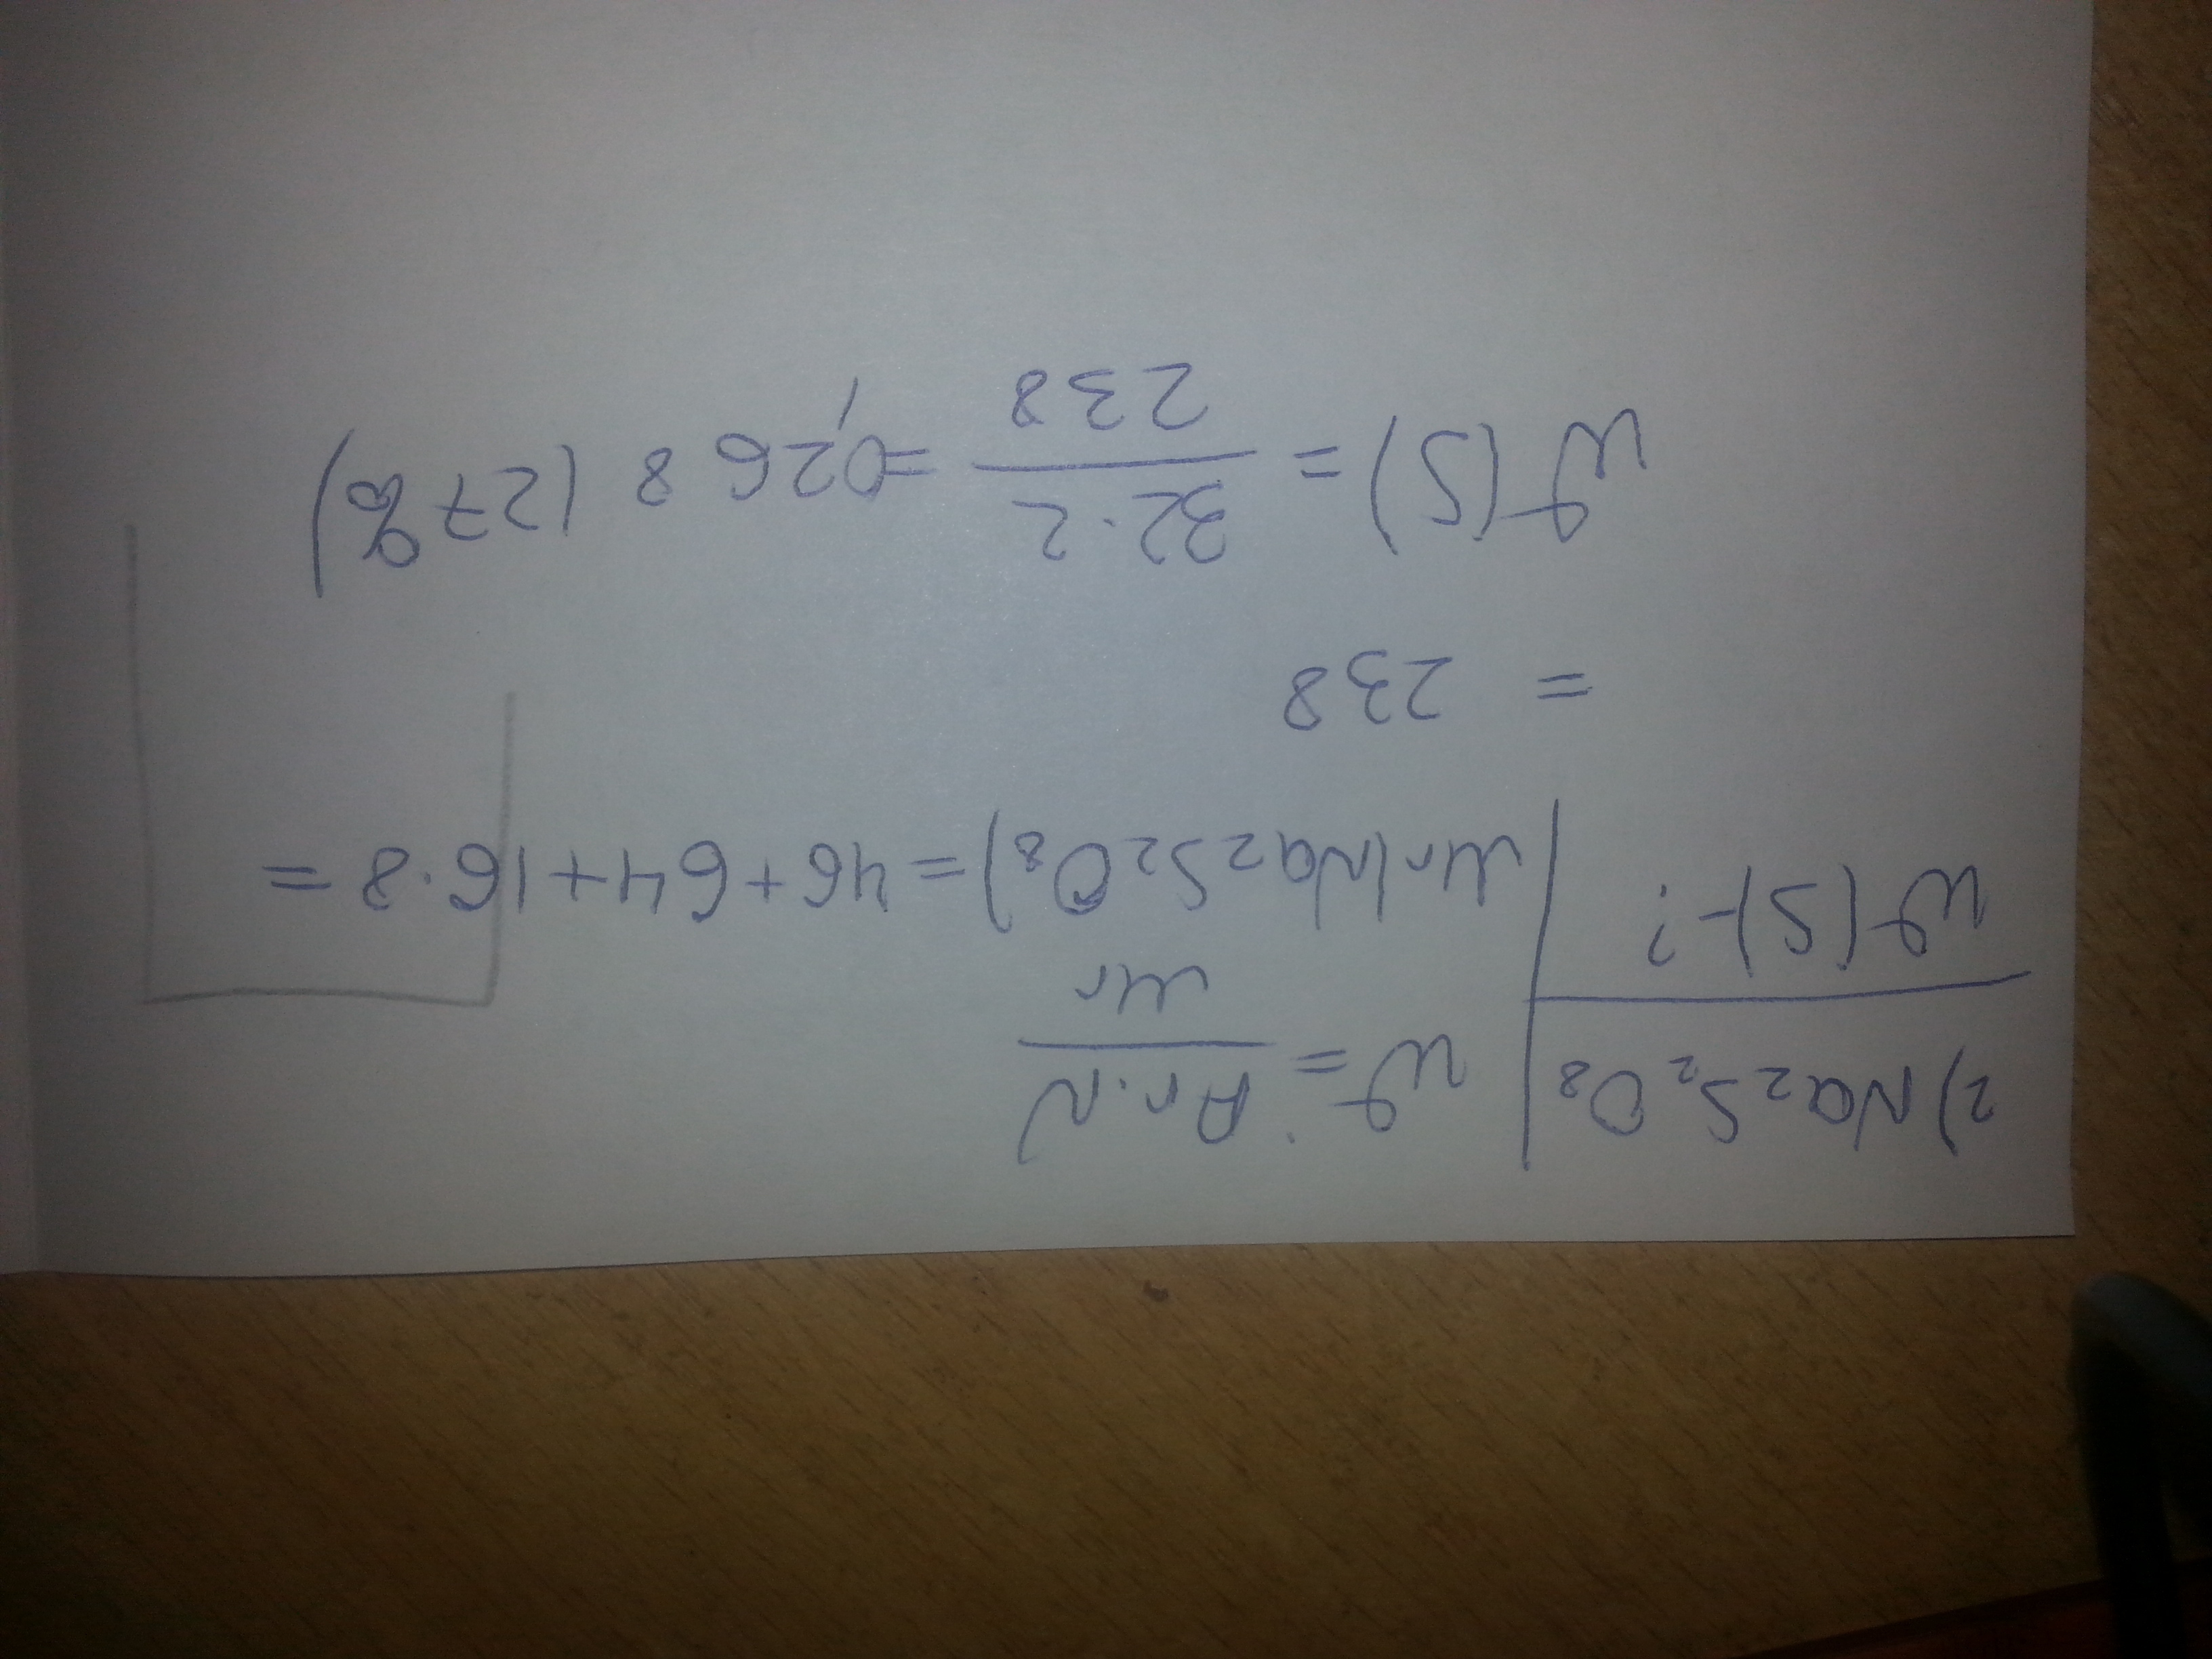 2) Na₂S₂O₈
W(S)-?
W = Ar·N / Mr
Mr(Na₂S₂O₈) = 46+64+16·8 =
= 238
W(S) = 32·2 / 238 = 0,268 (27%)